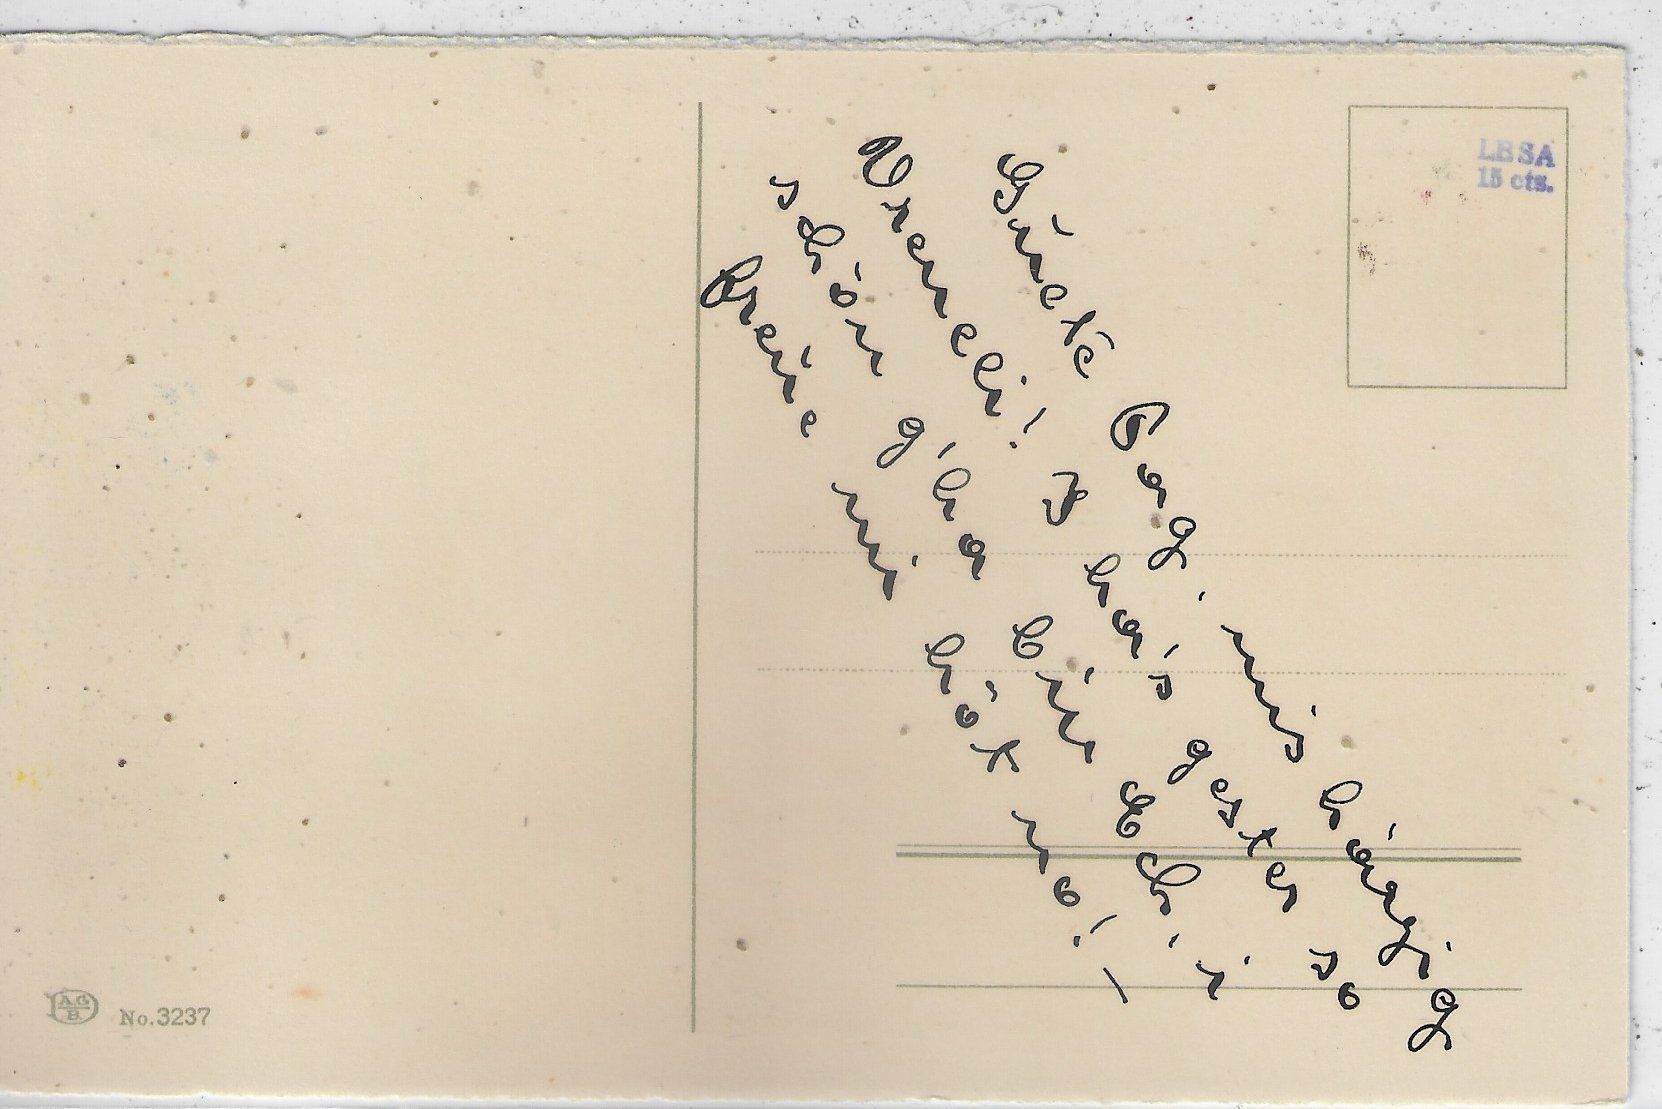 LBSA
15 cts.
Guete Tag, mis härzig
Vreneli! I ha's gester so
schön g'ha bin Ech, i
freue mi höt no! –
A.G.
B.
No. 3237